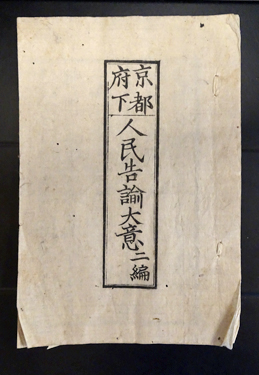 京都府下人民告諭大意二編